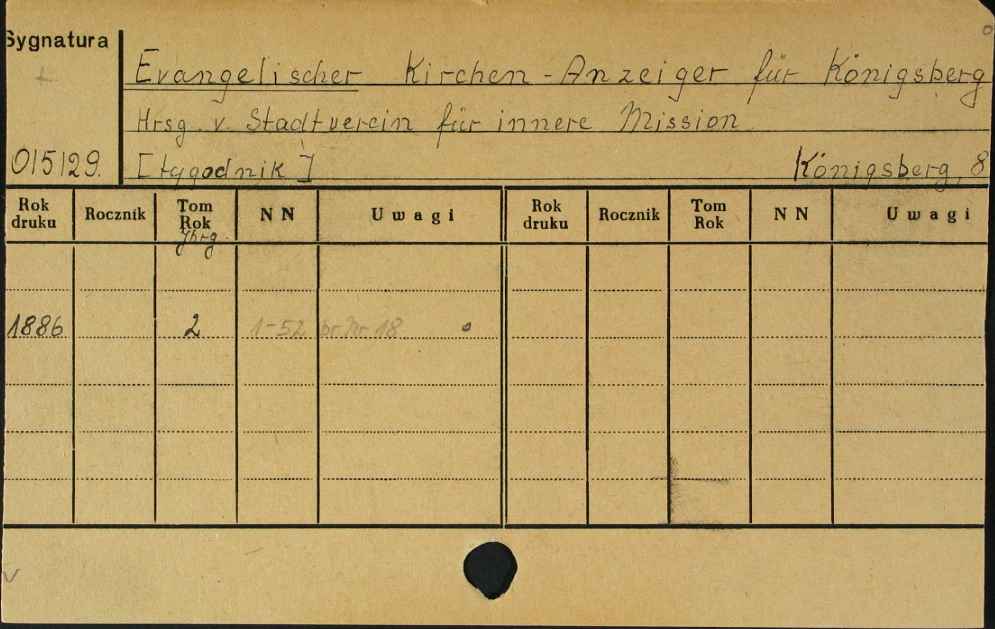 Sygnatura
Evangelischer Kirchen-Anzeiger für Königsberg
Hrsg. v. Stadtverein für innere Mission
015129. [tygodnik] Königsberg, 8
Rok druku Rocznik Tom Rok NN Uwagi Rok druku Rocznik Tom Rok NN Uwagi
Jhrg.
1886 2 1-52 br. Nr. 18